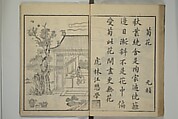 菊花
元稹
秋叢繞舍是陶家遍繞籬
邊日漸斜不是花中偏
愛菊此花開盡更無花